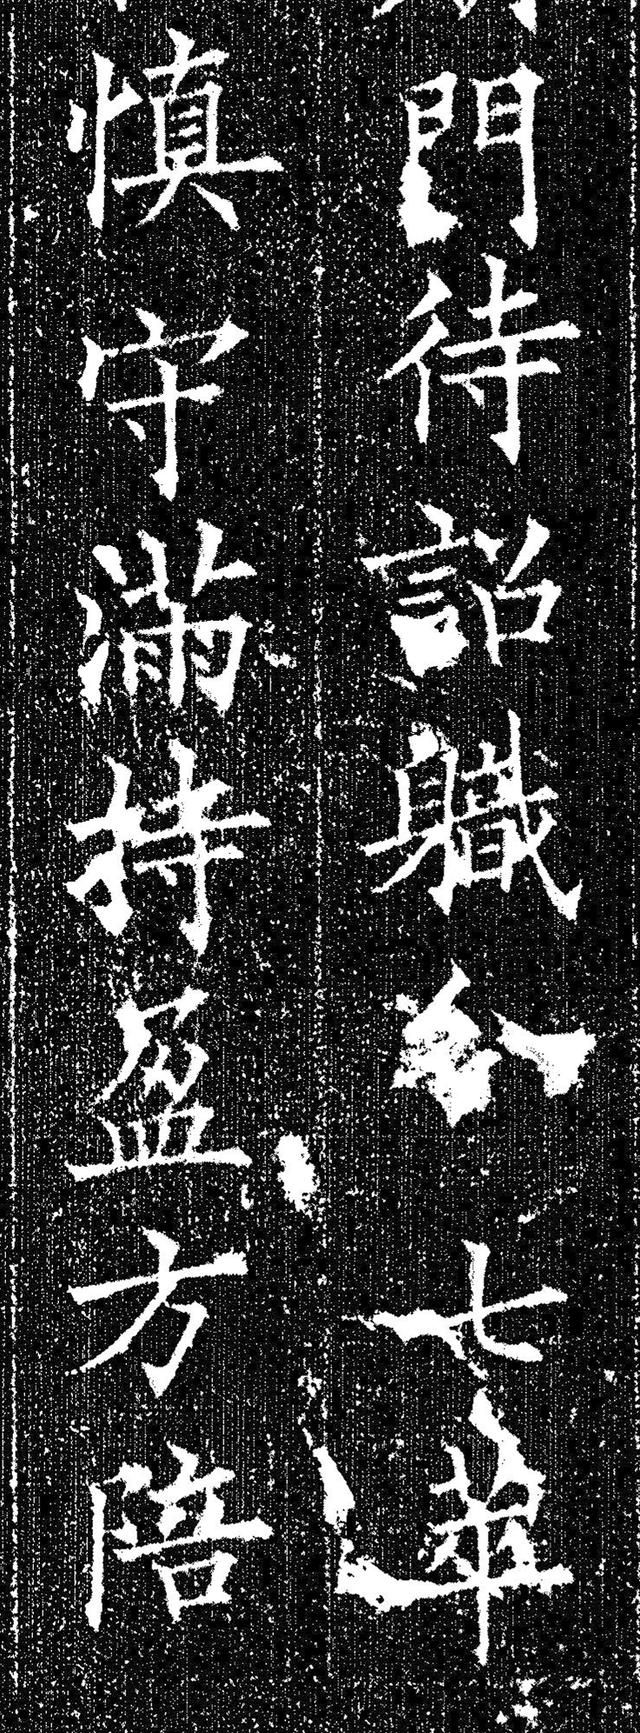 門待詔軄七萃
慎守滿持盈方陪